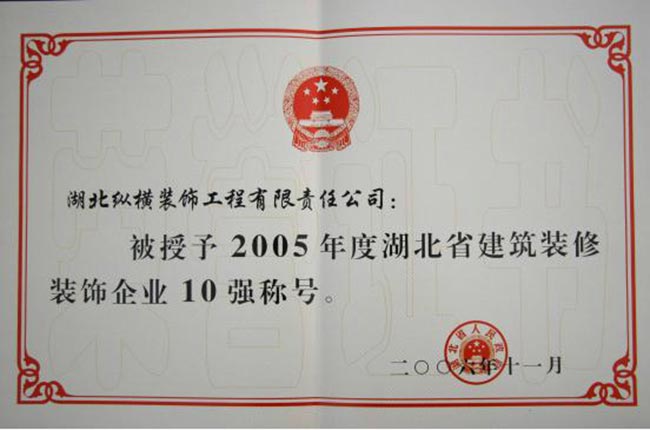 荣誉证书
湖北纵横装饰工程有限责任公司：
被授予2005年度湖北省建筑装修
装饰企业10强称号。
湖北省人民政府
二〇〇六年十一月